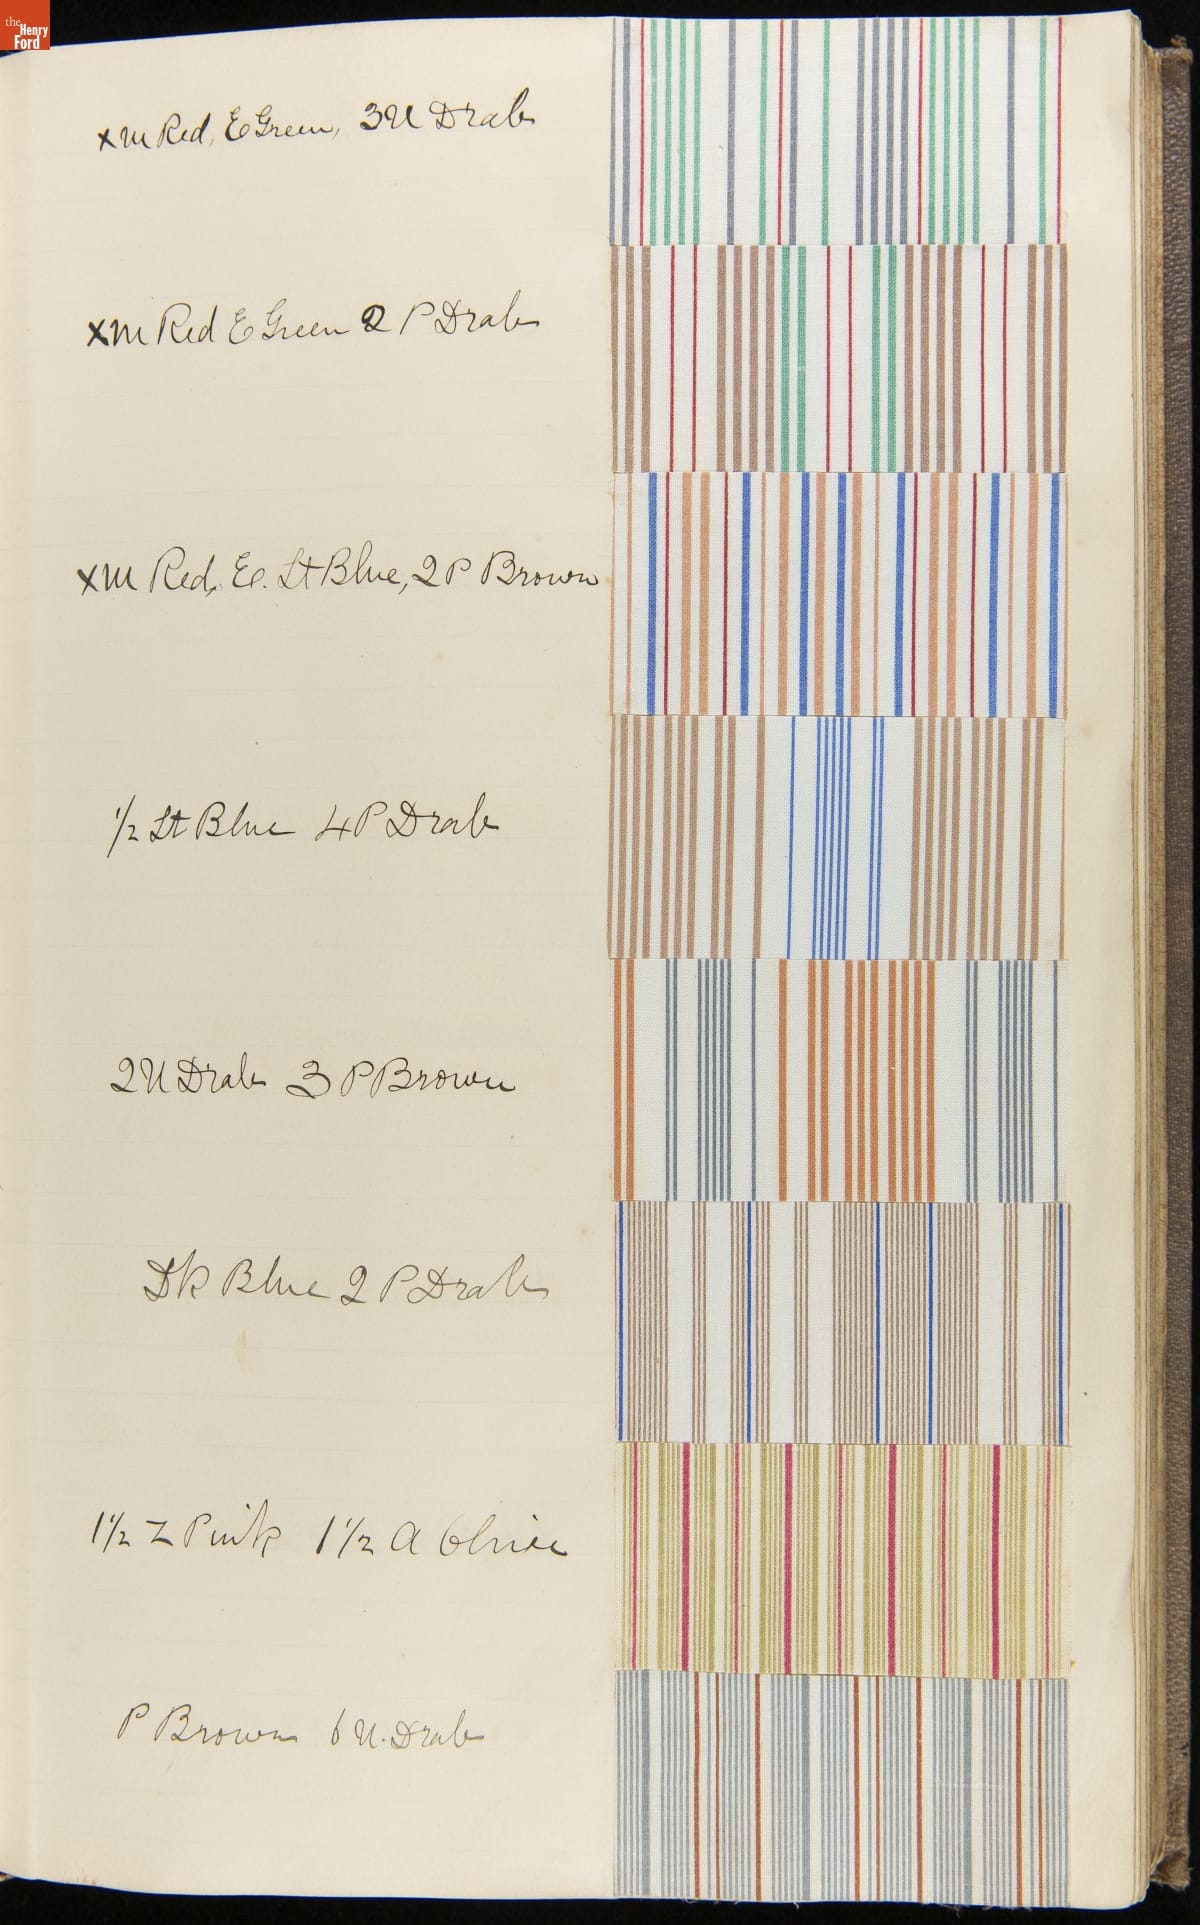 the
Henry
Ford
x M Red, E Green, 3 U Drab
x M Red E Green 2 P Drab
x M Red, E. Lt Blue, 2 P Brown
1/2 Lt Blue 4 P Drab
2 U Drab 3 P Brown
Dk Blue 2 P Drab
1 1/2 Z Pink 1 1/2 A Olive
P Brown 6 U. Drab